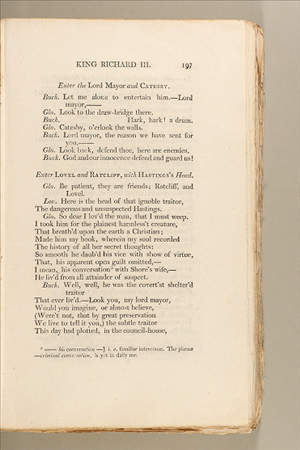 KING RICHARD III. 197
Enter the Lord Mayor and CATESBY.
Buck. Let me alone to entertain him.—Lord
mayor,——
Glo. Look to the draw-bridge there.
Buck. Hark, hark! a drum.
Glo. Catesby, o'erlook the walls.
Buck. Lord mayor, the reason we have sent for
you,——
Glo. Look back, defend thee, here are enemies.
Buck. God and our innocence defend and guard us!
Enter LOVEL and RATCLIFF, with HASTINGS's Head.
Glo. Be patient, they are friends; Ratcliff, and
Lovel.
Lov. Here is the head of that ignoble traitor,
The dangerous and unsuspected Hastings.
Glo. So dear I lov'd the man, that I must weep.
I took him for the plainest harmless't creature,
That breath'd upon the earth a Christian;
Made him my book, wherein my soul recorded
The history of all her secret thoughts:
So smooth he daub'd his vice with show of virtue,
That, his apparent open guilt omitted,—
I mean, his conversation with Shore's wife,—
He liv'd from all attainder of suspect.
Buck. Well, well, he was the covert'st shelter'd
traitor
That ever liv'd.—Look you, my lord mayor,
Would you imagine, or almost believe,
(Were't not, that by great preservation
We live to tell it you,) the subtle traitor
This day had plotted, in the council-house,
—— his conversation —] i. e. familiar intercourse. The phrase
—criminal conversation, is yet in daily use.